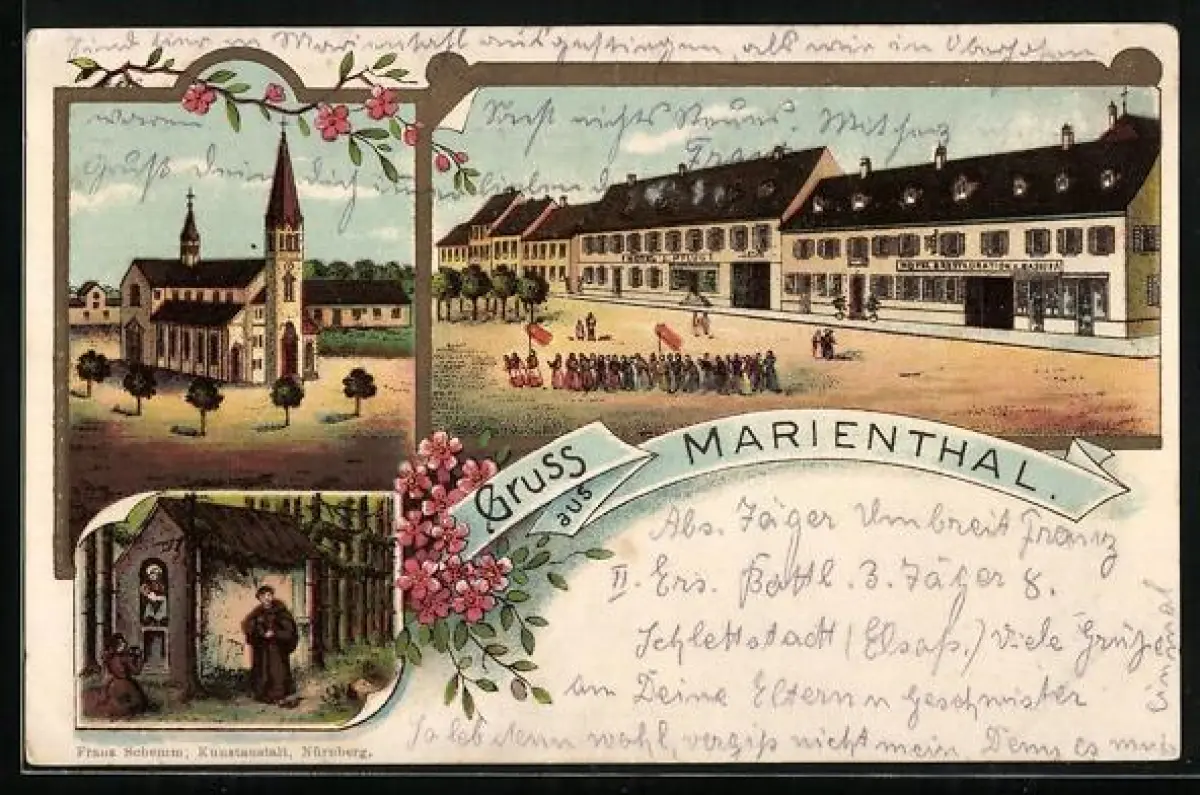 Sind hier in Marienthal ausgestiegen, als wir in Oberhofen
waren.
Sonst nichts Neues. Mit herz
Gruß Dein Dich
Franz
HOTEL z. PFLUG
HOTEL & RESTAURATION
Gruss
aus
MARIENTHAL.
Abs. Jäger Umbreit Franz
II. Ers. Battl. 3. Jäger 8.
Schlettstadt (Elsaß.) Viele Grüße
an Deine Eltern u Geschwister
So leb denn wohl, vergiß nicht mein, Denn es muß
Franz Schemm, Kunstanstalt, Nürnberg.